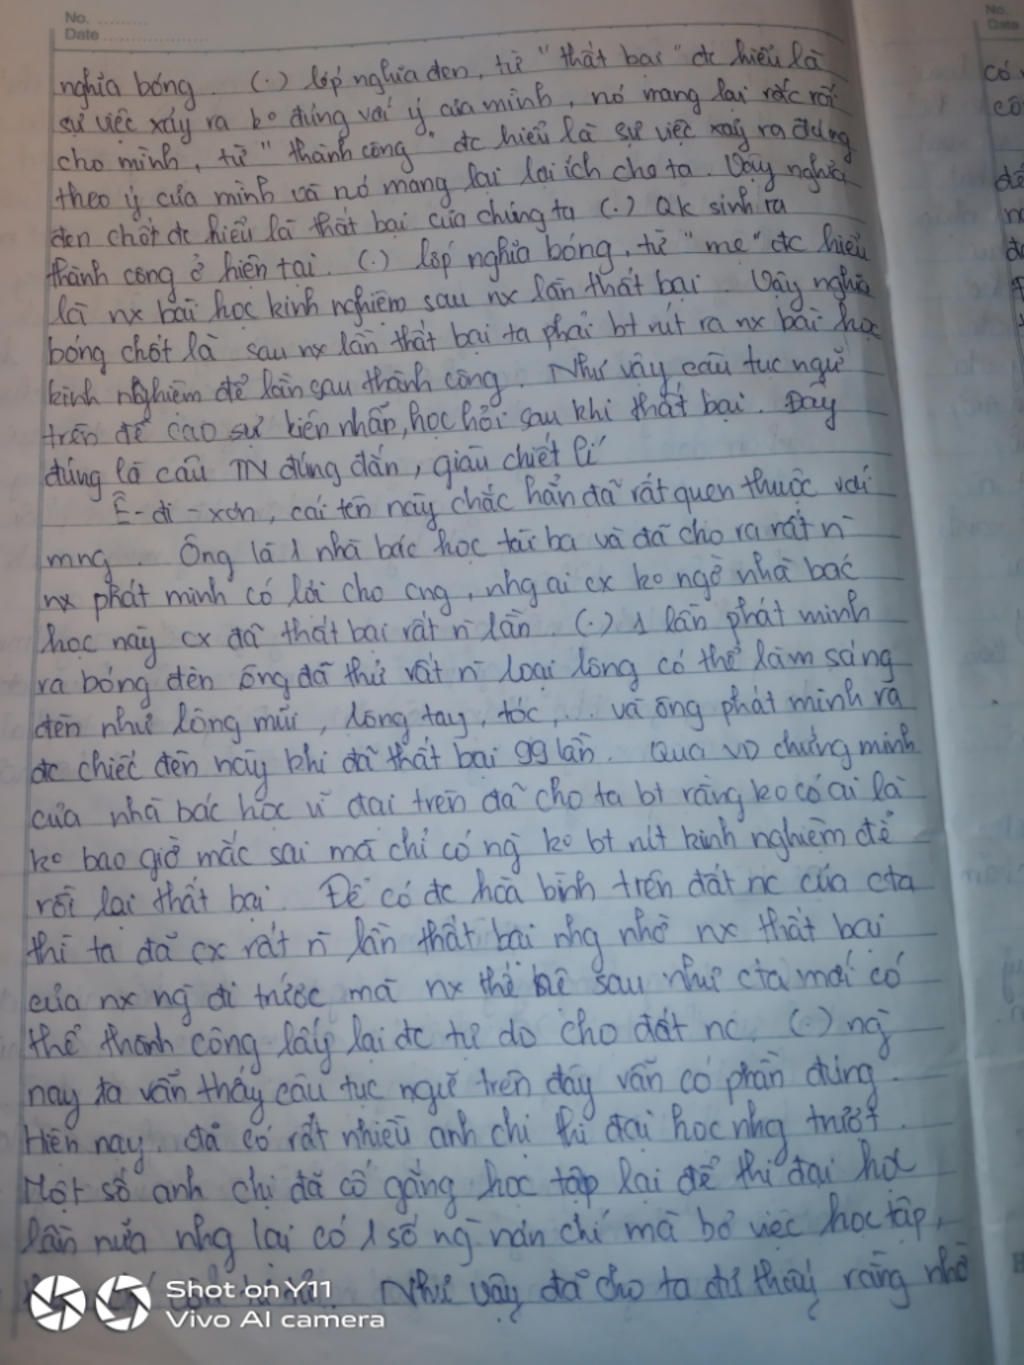 No. ..........
Date ..................
nghĩa bóng. (.) lớp nghĩa đen, từ "thất bại" đc hiểu là
sự việc xảy ra ko đúng với ý của mình, nó mang lại rắc rối
cho mình, từ "thành công" đc hiểu là sự việc xảy ra đúng
theo ý của mình và nó mang lại lợi ích cho ta. Vậy nghĩa
đen chốt đc hiểu là thất bại của chúng ta (.) Qk sinh ra
thành công ở hiện tại. (.) lớp nghĩa bóng, từ "mẹ" đc hiểu
là nx bài học kinh nghiệm sau nx lần thất bại. Vậy nghĩa
bóng chốt là sau nx lần thất bại ta phải bt rút ra nx bài học
kinh nghiệm để lần sau thành công. Như vậy câu tục ngữ
trên đề cao sự kiên nhẫn, học hỏi sau khi thất bại. Đây
đúng là câu TN đúng đắn, giàu chiết lí
Ê-đi-xơn, cái tên này chắc hẳn đã rất quen thuộc với
mng. Ông là 1 nhà bác học tài ba và đã cho ra rất n`
nx phát minh có lời cho cng, nhg ai cx ko ngờ nhà bác
học này cx đã thất bại rất n` lần. (.) 1 lần phát minh
ra bóng đèn ông đã thử rất n` loại lông có thể làm sáng
đèn như lông mũi, lông tay, tóc,... và ông phát minh ra
đc chiếc đèn này khi đã thất bại 99 lần. Qua VD chứng minh
của nhà bác học vĩ đại trên đã cho ta bt rằng ko có ai là
ko bao giờ mắc sai mà chỉ có ng ko bt rút kinh nghiệm để
rồi lại thất bại. Để có đc hòa bình trên đất nc của cta
thì ta đã cx rất n` lần thất bại nhg nhờ nx thất bại
của nx ng đi trước mà nx thế hệ sau như cta mới có
thể thành công lấy lại đc tự do cho đất nc. (.) ng`
nay ta vẫn thấy câu tục ngữ trên đây vẫn có phần đúng.
Hiện nay, đã có rất nhiều anh chị thi đại học nhg trượt.
Một số anh chị đã cố gắng học tập lại để thi đại học
lần nữa nhg lại có 1 số ng nản chí mà bỏ việc học tập,
Như vậy đã cho ta thấy rằng nhờ
Shot on Y11
Vivo AI camera